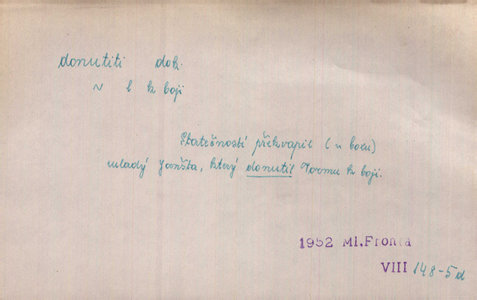 donutiti dok.
~ k boji
Statečností překvapil (v boxu)
mladý Janšta, který donutil Tormu k boji.
1952 Ml.Fronta
VIII 148-5d